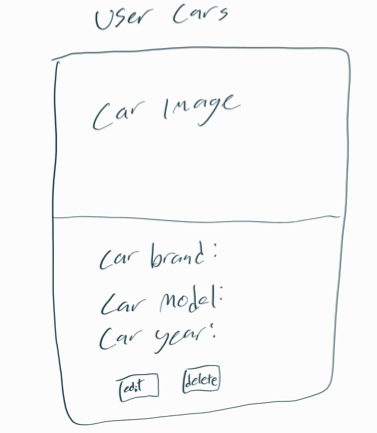 User Cars
Car Image
Car brand:
Car Model:
Car year:
edit delete